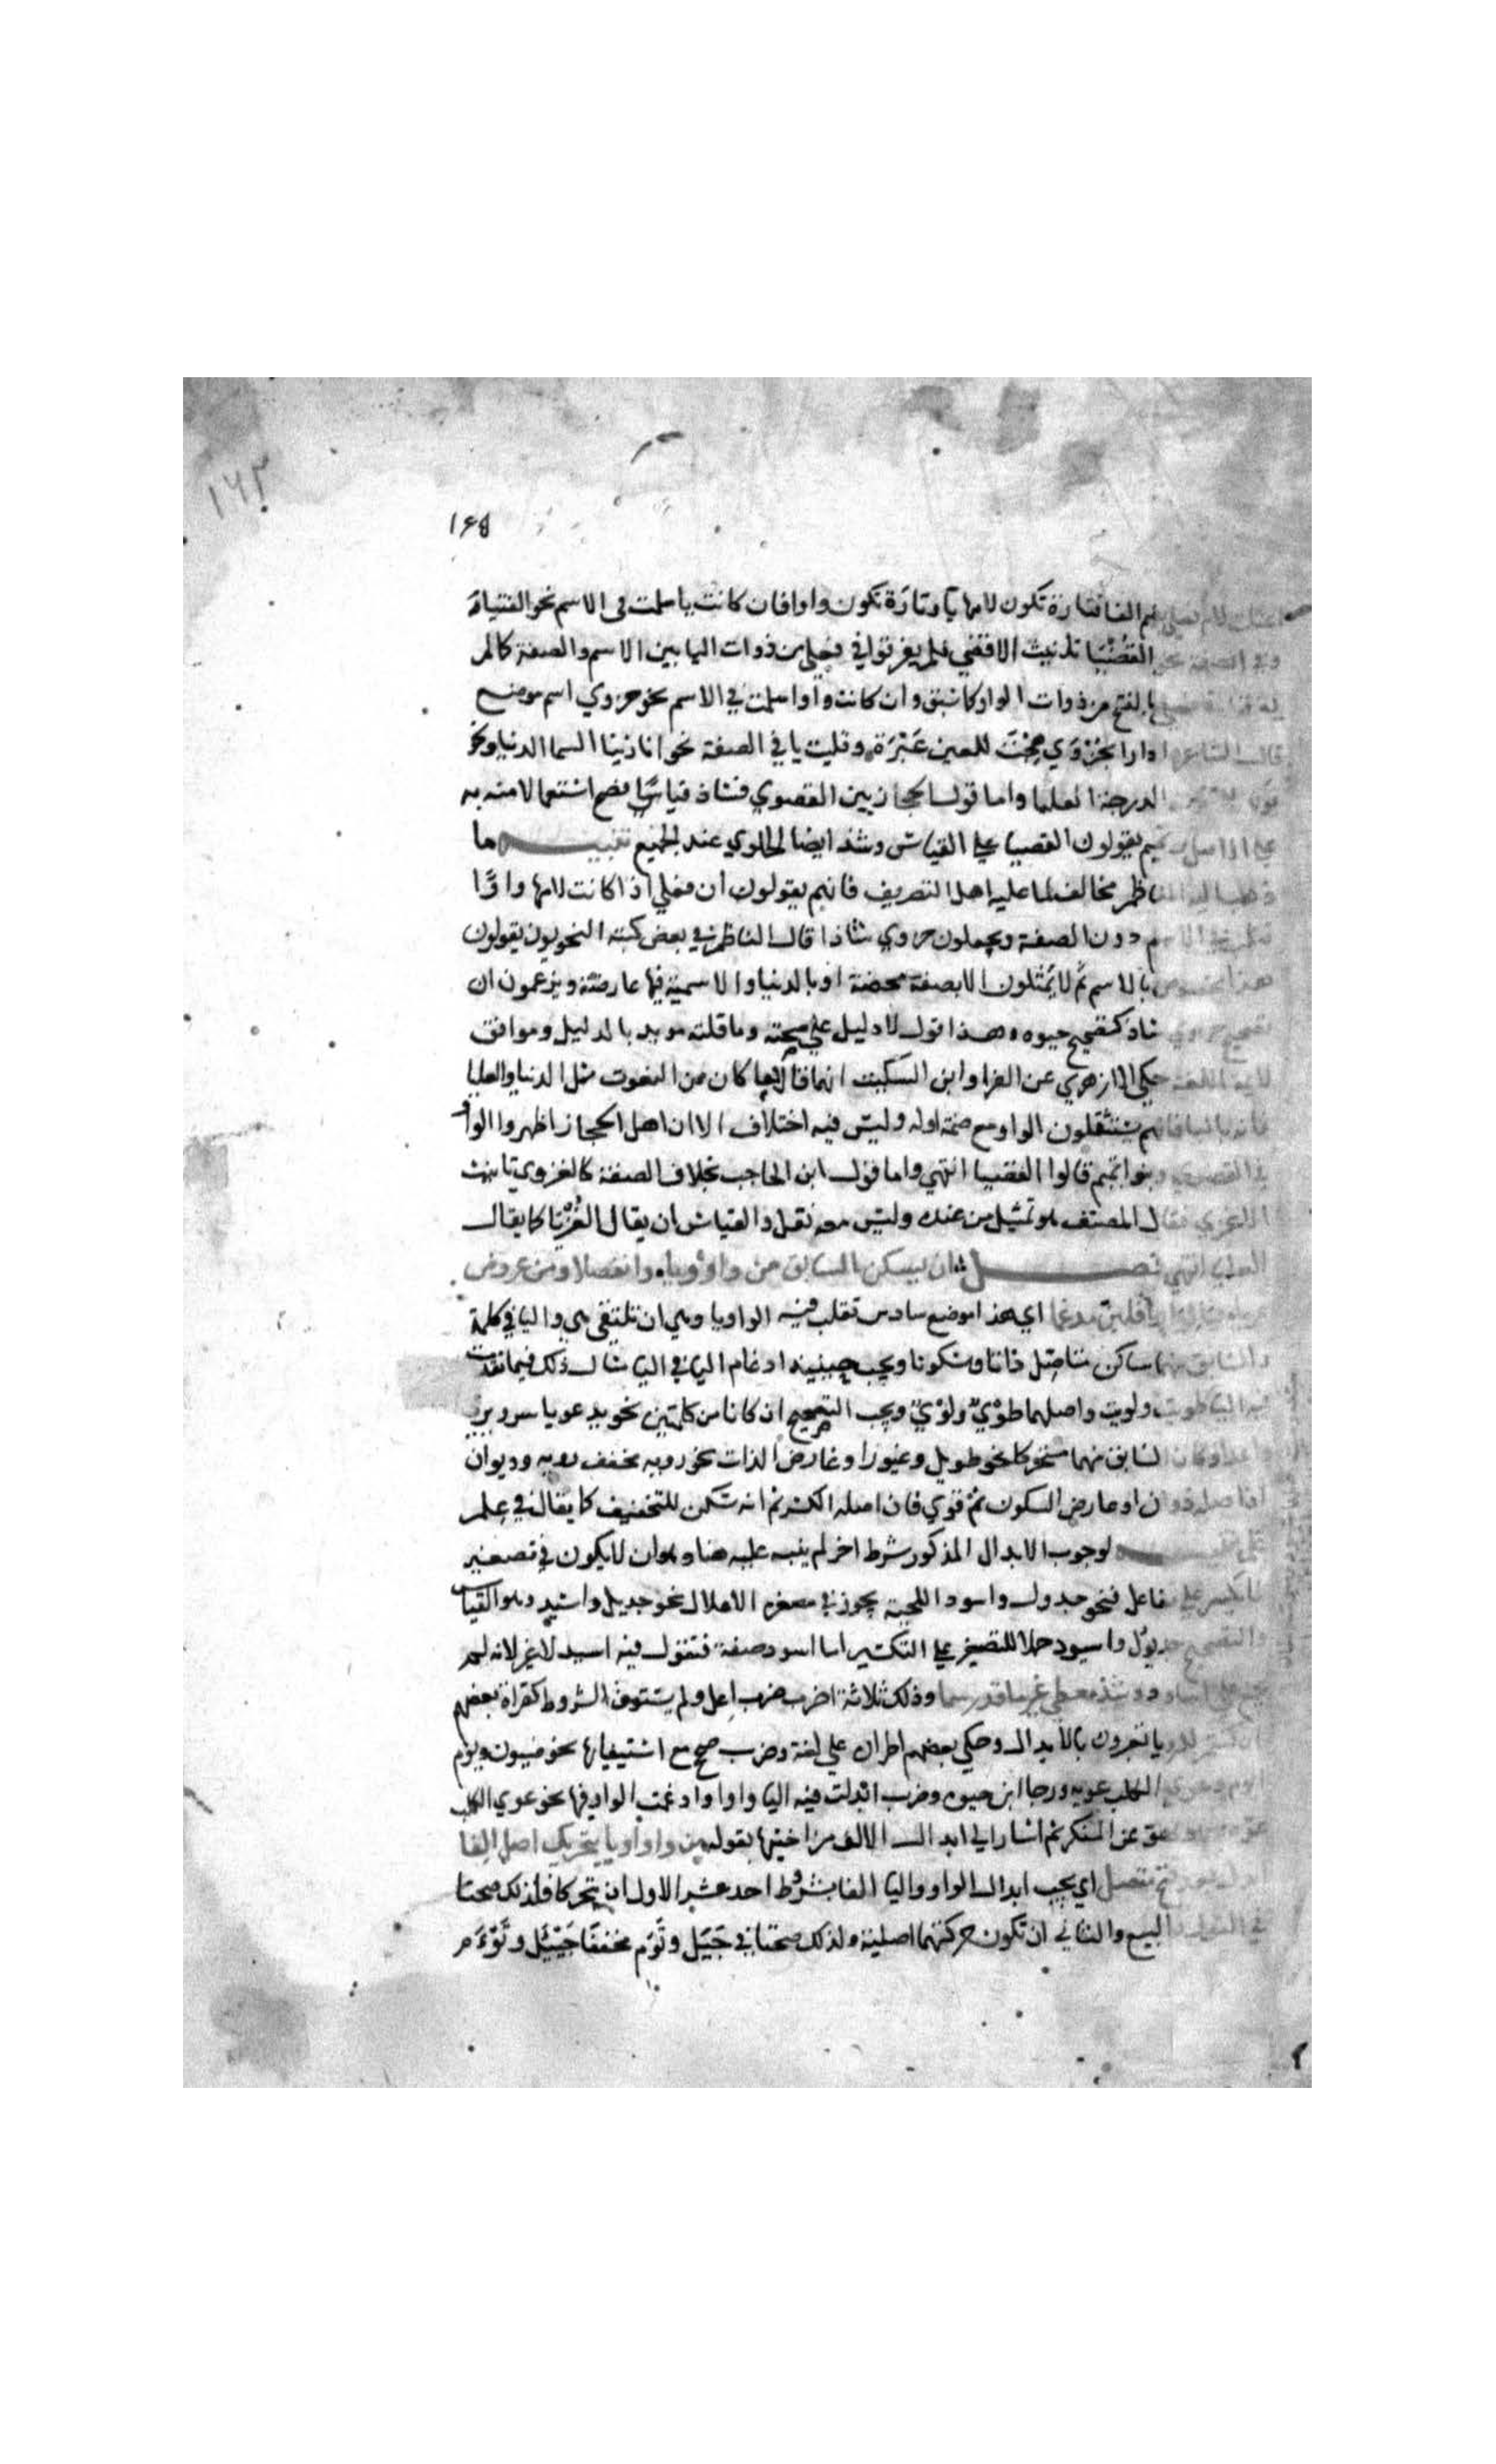 ١٦٢
١٤٥
بضم الفا فتارة تكون لامها يا وتارة تكون واوا فان كانت يا سلمت في الاسم نحو الفتيا
وفي الصفة نحو القُصْيَا تانيث الاقصى فلم يفرقوا في فعلى من ذوات اليا بين الاسم والصفة كالم
بالفتح من ذوات الواو كما سبق وان كانت واوا سلمت في الاسم نحو حزوي اسم موضع
قال الشاعر ادارا بحُزْوَي هِجْتِ للعين عَبْرَة وقلبت يا في الصفة نحو انا زينا السما الدنيا ونحو
الدرجة العليا واما قول الحجازيين القصوي فشاذ قياسًا فصيح استعمالا منبه به
علي الاصل تميم يقولون القصيا علي القياس وشذ ايضا الحلوي عند الجميع تنبيه ما
ذهب اليه الناظم مخالف لما عليه اهل التصريف فانهم يقولون ان فعلي اذا كانت لامها واوًا
الاسم دون الصفة ويجعلون حزوي شاذا قال الناظم في بعض كتبه النحويون يقولون
هذا مخصوص بالاسم ثم لا يُمَثلون الا بصفة محضة او بالدنيا والاسمية فيها عارضة ويزعمون ان
تصحيح حزوي شاذ كتصحيح حيوه وهذا قول لا دليل علي صحته وما قلته مويد بالدليل وموافق
لايمة اللغة حكي الازهري عن الفرا وابن السكيت انهما قالا ما كان من النعوت مثل الدنيا والعليا
فانه باليا فانهم يستثقلون الواو مع ضمة اوله وليس فيه اختلاف الا ان اهل الحجاز اظهروا الواو
في القصوي وبنو تميم قالوا القصيا انتهي واما قول ابن الحاجب بخلاف الصفة كالغزوي تانيث
الاغزي فقال المصنف هو تمثيل من عنده وليس معه نقل والقياس ان يقال الغُزْيَا كما يقال
العليا انتهي فصل ان يسكن السابق من واو ويا واتصلا ومن عروض
عريا فيا الواو اقلبن مدغما اي هذا موضع سادس تقلب فيه الواو يا وهي ان تلتقي هي واليا في كلمة
والسابق منهما ساكن متاصل ذاتا وسكونا ويجب حينيذ ادغام اليا في اليا مثال ذلك فيما تقدمت
فيه اليا طويت ولويت واصلهما طوْيٌ ولوْيٌ ويجب التصحيح ان كانا من كلمتين نحو يدعو ياسر ويرمي
واعد او كان السابق منهما متحركا نحو طويل وغيورا وعارض الذات نحو رويه مخفف رويه وديوان
اذا اصله دوان او عارض السكون نحو قوي فان اصله الكسر ثم انه سكن للتخفيف كما يقال في عِلم
علم تنبيه لوجوب الابدال المذكور شرط اخر لم ينبه عليه هنا وهو ان لا يكون في تصغير
ما يكسر علي مفاعل فنحو جدول واسود للحية يجوز في مصغره الاعلال نحو جديل واسيد وهو القياس
والتصحيح جديول واسيود حملا للتصغير علي التكسير اما اسود صفة فتقول فيه اسيد لا غير لانه لم
يجمع علي اساود وشذ معطي غير ما قد رسما وذلك ثلاثة اضرب ضرب اعل ولم يستوف الشروط كقراة بعضهم
ان كنتم للريا تعبرون بالابدال وحكي بعضهم اطراده علي لغة وضرب صح مع استيفايها نحو ضيون ويوم
ايوم وعوي الكلب عويه ورجا ابن حيوه وضرب ابدلت فيه اليا واوا وادغمت الواو فيها نحو عوي الكلب
عوة ونهو عن المنكر ثم اشار الي ابدال الالف من اختيها بقوله من واو او يا بتحريك اصل الفا
ابدل بعد فتح متصل اي يجب ابدال الواو واليا الفا بشروط احد عشر الاول ان تتحركا فلذلك صحتا
في القول والبيع والثاني ان تكون حركتهما اصلية ولذلك صحتا في جَيَل وتَوَم مخففا جَيْئل وتَوْءَم